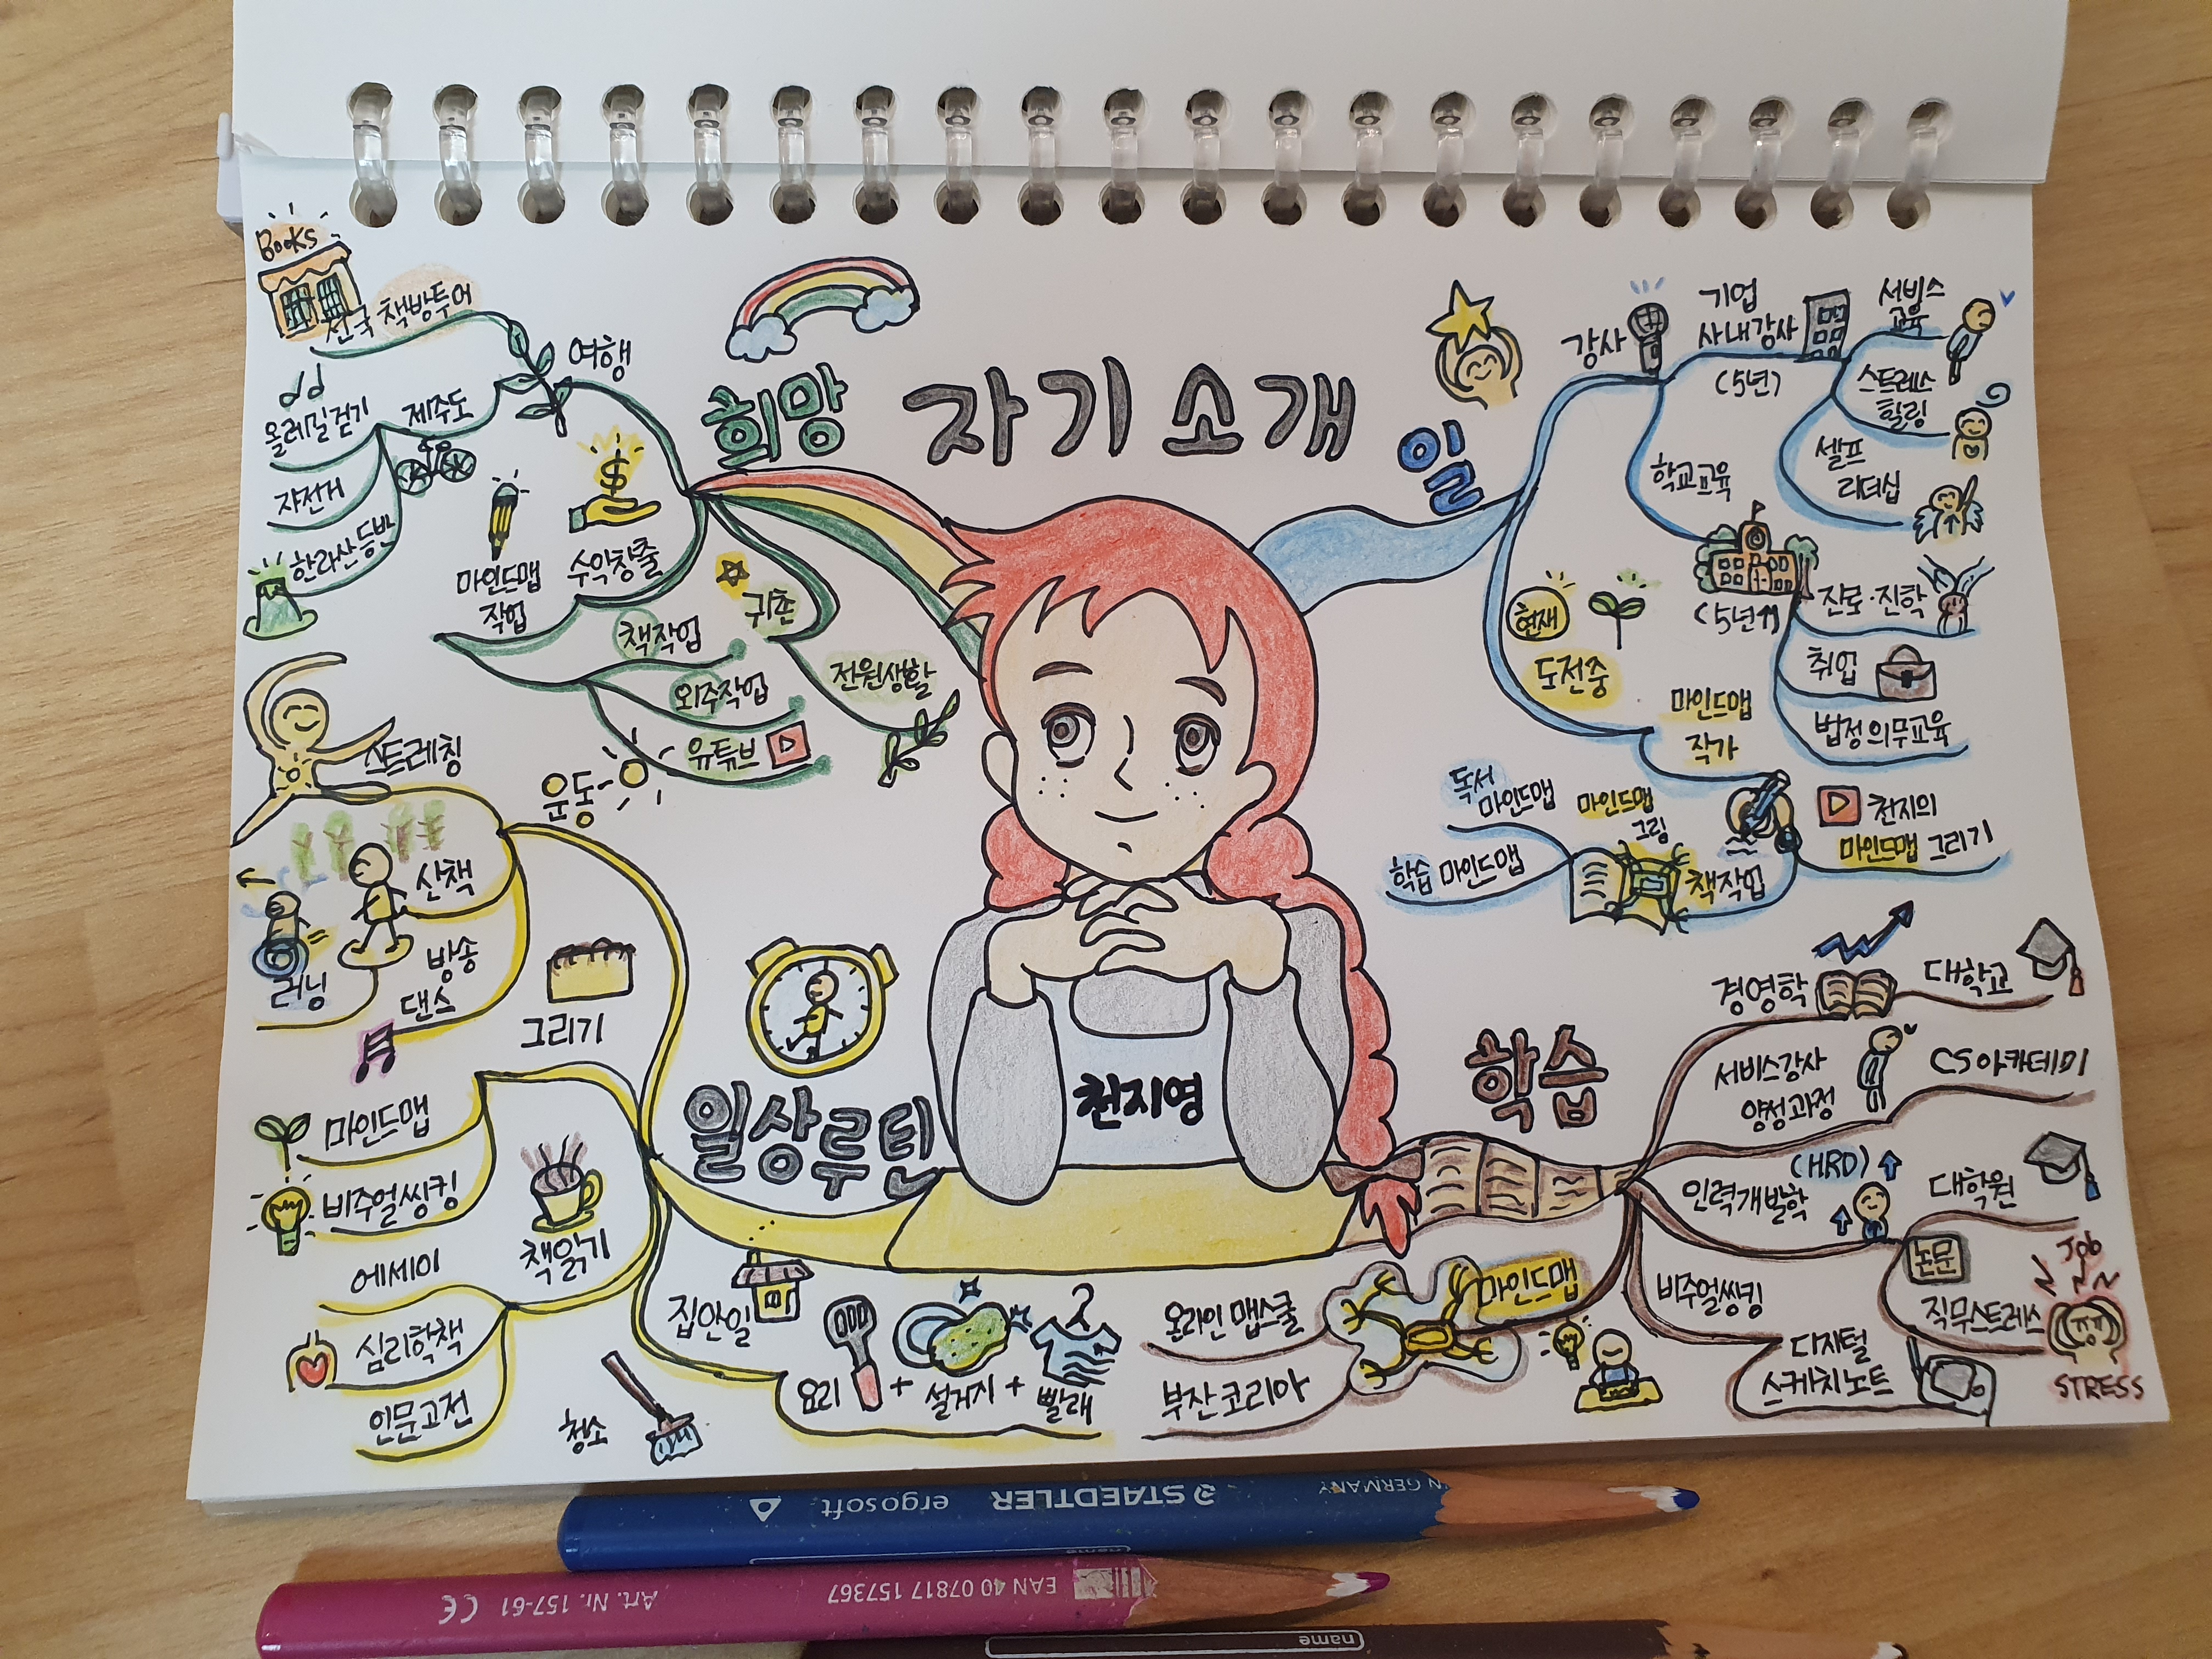 자기소개
천지영
희망
여행
Books
전국 책방투어
제주도
올레길걷기
자전거
한라산등반
$
수익창출
마인드맵
작업
책작업
외주작업
유튜브
귀촌
전원생활
일
강사
기업
사내강사
(5년)
서비스
교육
스트레스
힐링
셀프
리더십
학교교육
(5년↑)
진로·진학
취업
법정의무교육
현재
도전중
마인드맵
작가
천지의
마인드맵 그리기
책작업
마인드맵
그림
독서
마인드맵
학습 마인드맵
학습
경영학
대학교
서비스강사
양성과정
CS아카데미
(HRD)
인력개발학
대학원
논문
직무스트레스
Job
STRESS
비주얼씽킹
디지털
스케치노트
마인드맵
온라인 맵스쿨
부잔코리아
일상루틴
운동
스트레칭
산책
러닝
방송
댄스
그리기
마인드맵
비주얼씽킹
책읽기
에세이
심리학책
인문고전
집안일
요리 + 설거지 + 빨래
청소
STAEDTLER ergosoft
name
EAN 40 07817 157367 Art. Nr. 157-61 CE
name